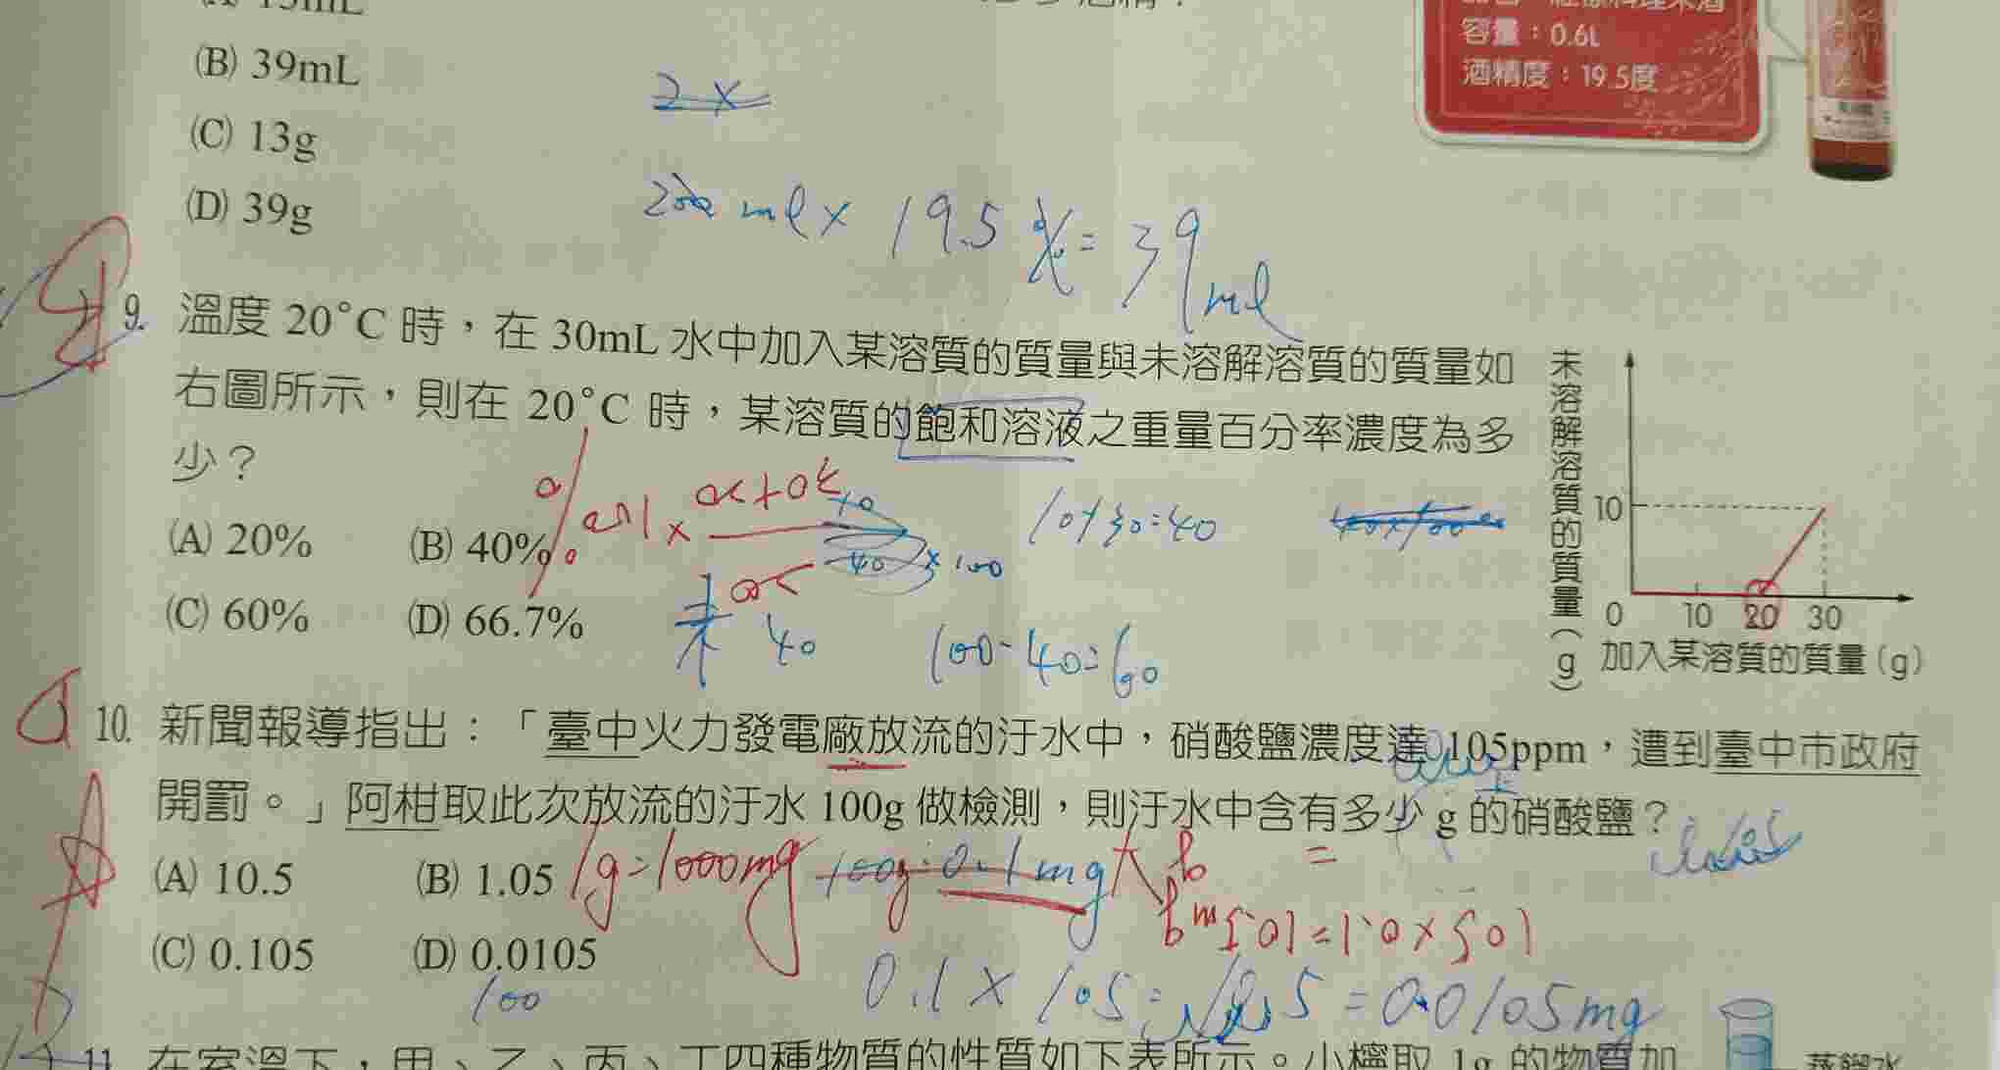 (B) 39mL
(C) 13g
(D) 39g
容量：0.6L
酒精度：19.5度
2x
200 ml x 19.5 % = 39 ml
9. 溫度 20°C 時，在 30mL 水中加入某溶質的質量與未溶解溶質的質量如
右圖所示，則在 20°C 時，某溶質的飽和溶液之重量百分率濃度為多
少？
(A) 20%
(B) 40%
(C) 60%
(D) 66.7%
10+30=40
40
x 100
40
100-40=60
未溶解溶質的質量(g)
10
0 10 20 30
加入某溶質的質量(g)
10. 新聞報導指出：「臺中火力發電廠放流的汙水中，硝酸鹽濃度達 105ppm，遭到臺中市政府
開罰。」阿柑取此次放流的汙水 100g 做檢測，則汙水中含有多少 g 的硝酸鹽？
(A) 10.5
(B) 1.05
(C) 0.105
(D) 0.0105
1g=1000mg
100g=0.1mg
105×0.1=10.5mg
0.1 x 105=10.5=0.0105mg
100
11. 在室溫下，甲、乙、丙、丁四種物質的性質如下表所示。小檸取 1g 的物質加
蒸餾水